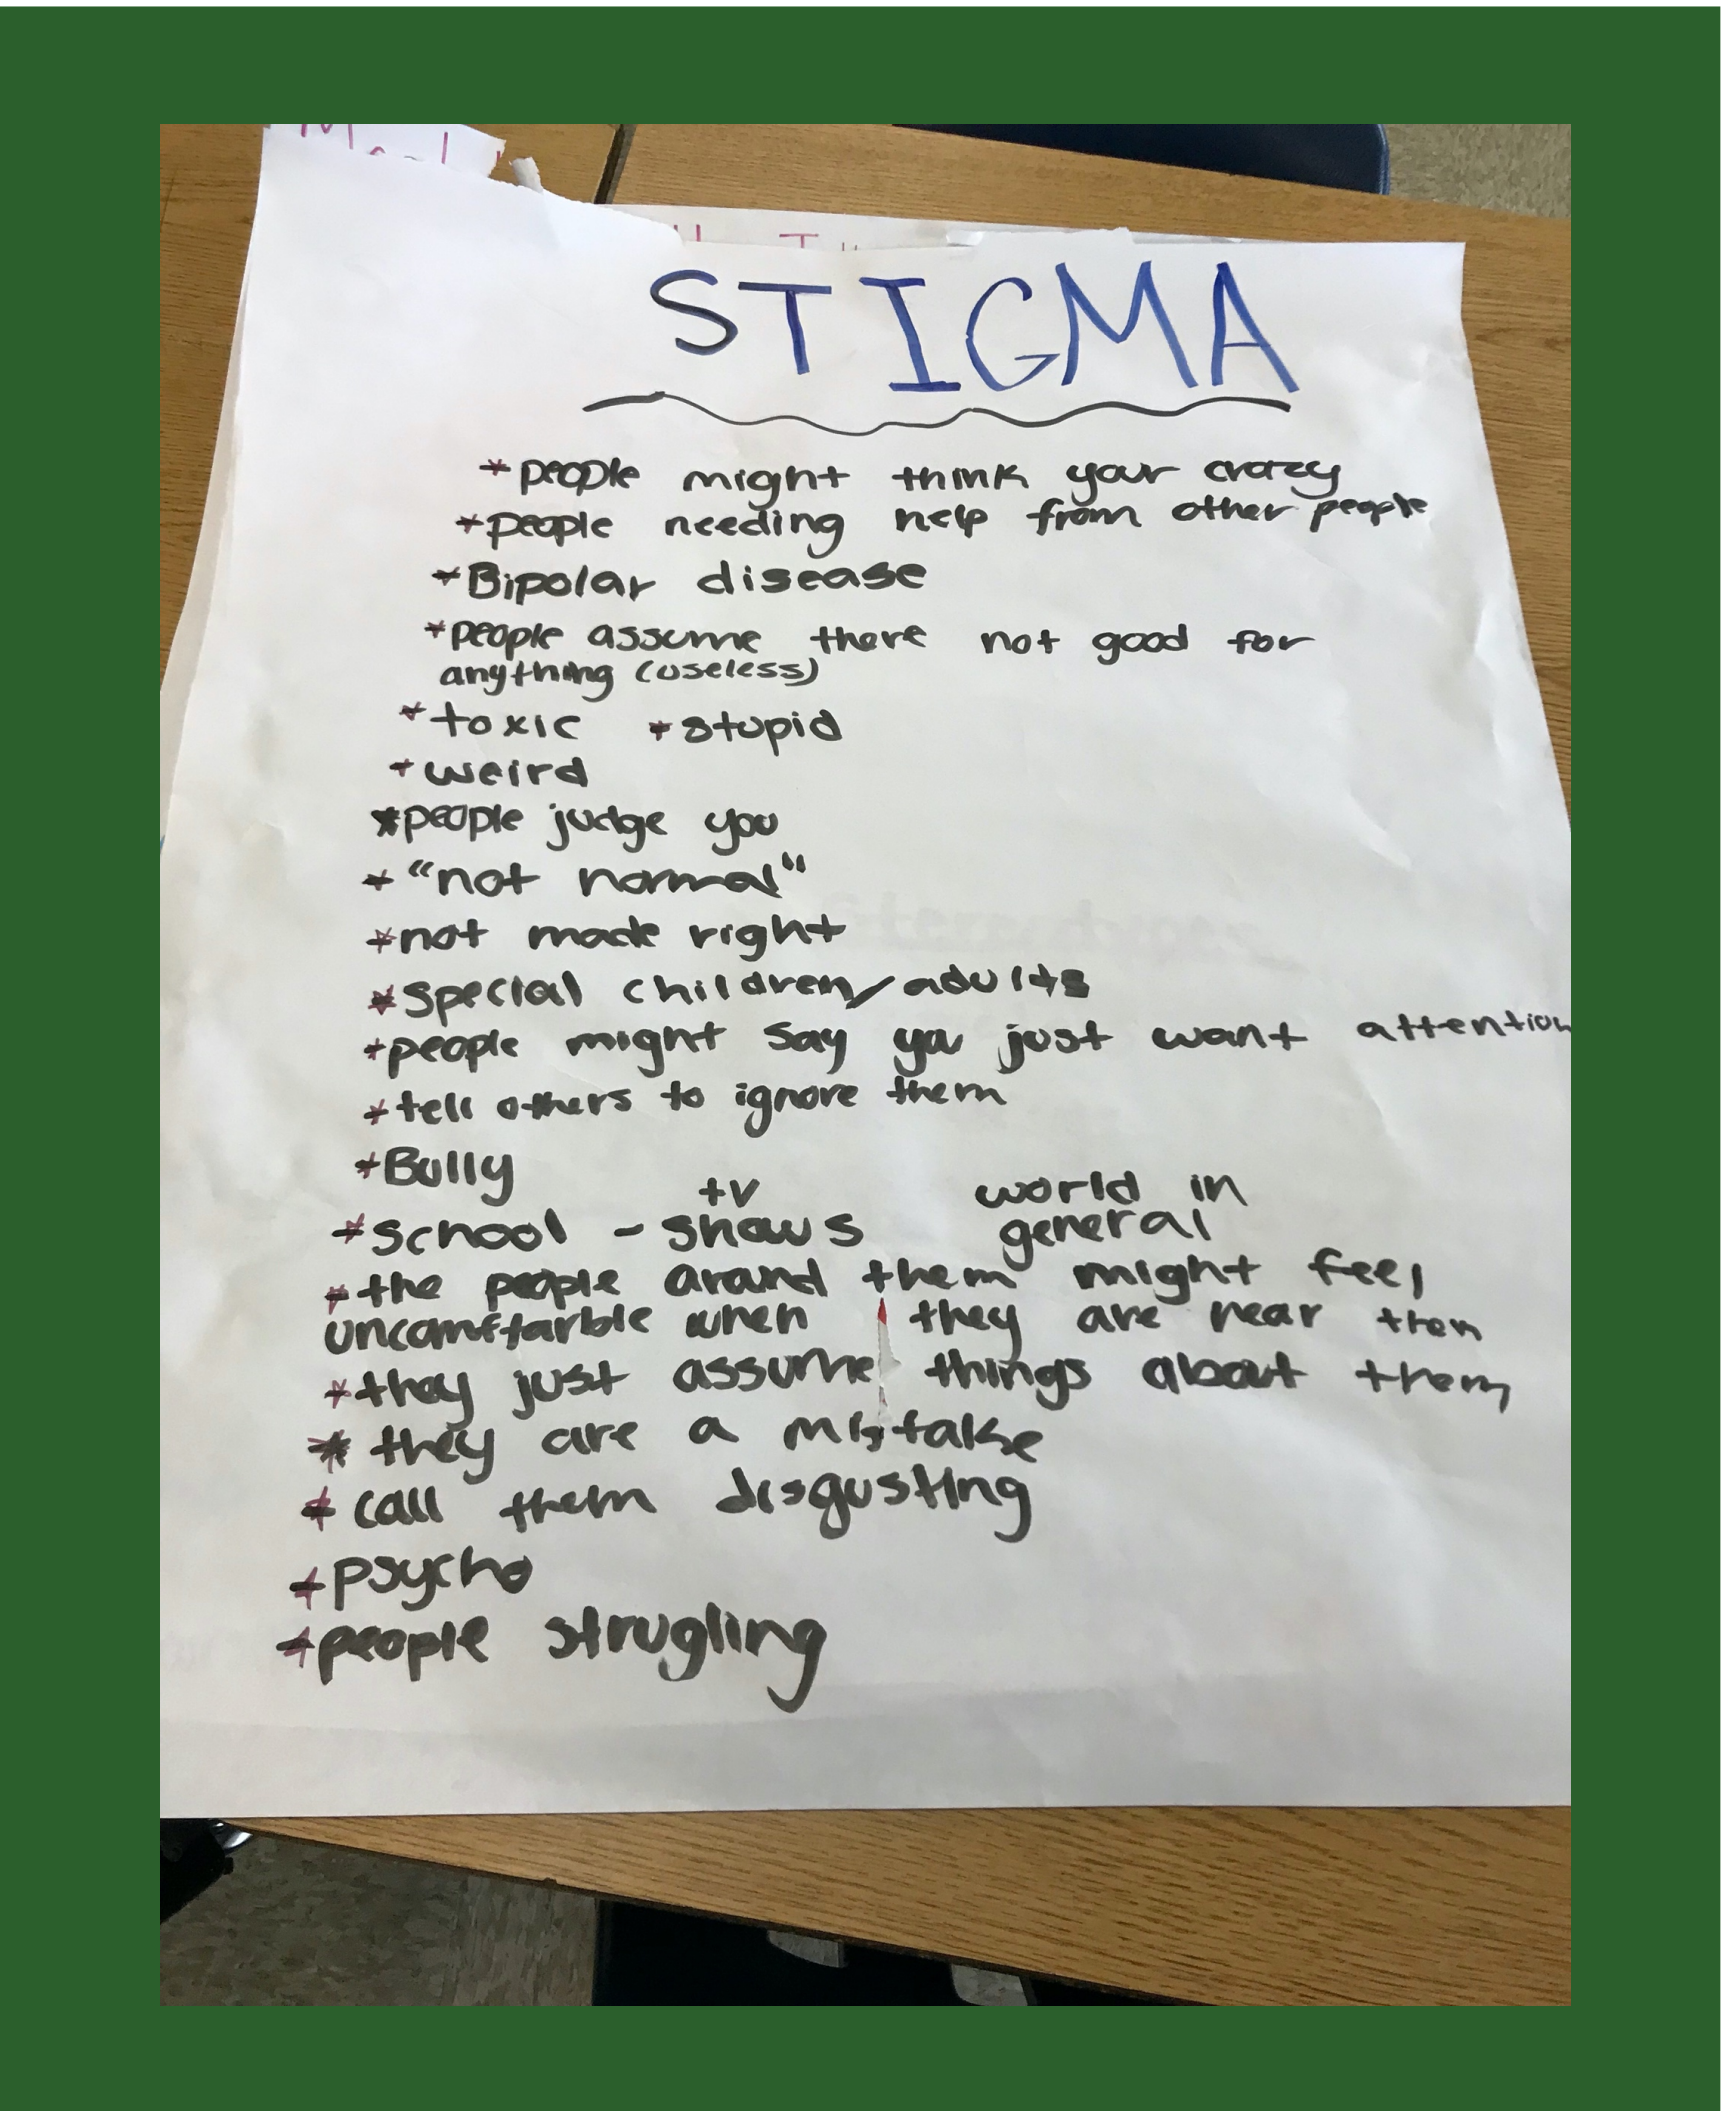 STIGMA
*people might think your crazy
*people needing help from other people
*Bipolar disease
*people assume there not good for
anything (useless)
*toxic *stupid
*weird
*people judge you
*"not normal"
*not made right
*special children/adults
*people might say you just want attention
*tell others to ignore them
*Bully
tv world in
*school - shows general
*the people around them might feel
uncomftarble when they are near them
*they just assume things about them
*they are a mistake
*call them disgusting
*psycho
*people strugling